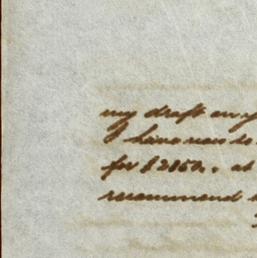 my draft on y
I have now to
for $2150. at
recommend